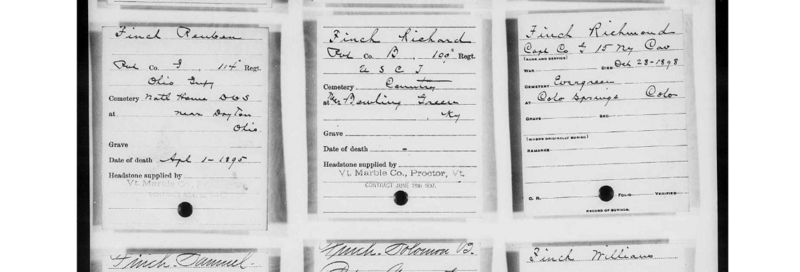 Finch Reuben
Pvt Co. G, 114" Regt.
Ohio Inf
Cemetery Natl Home DVS
at near Dayton
Ohio
Grave
Date of death Apl 1-1895
Headstone supplied by
Vt Marble Co., Proctor, Vt.
Finch Richard
Pvt Co. B, 100" Regt.
U S C T
Cemetery Country
at Nr Bowling Green
Ky
Grave
Date of death -
Headstone supplied by
Vt Marble Co., Proctor, Vt.
CONTRACT JUNE
Finch Richmond
Capt Co G 15 Ny Cav
(RANK AND SERVICE)
WAR DIED Oct 28-1898
CEMETERY Evergreen
AT Colo Springs Colo
GRAVE SEC.
(WHERE ORIGINALLY BURIED)
REMARKS
O. R. FOLIO VERIFIED
RECORD OF BURIALS.
Finch Samuel
Finch Solomon
Finch William